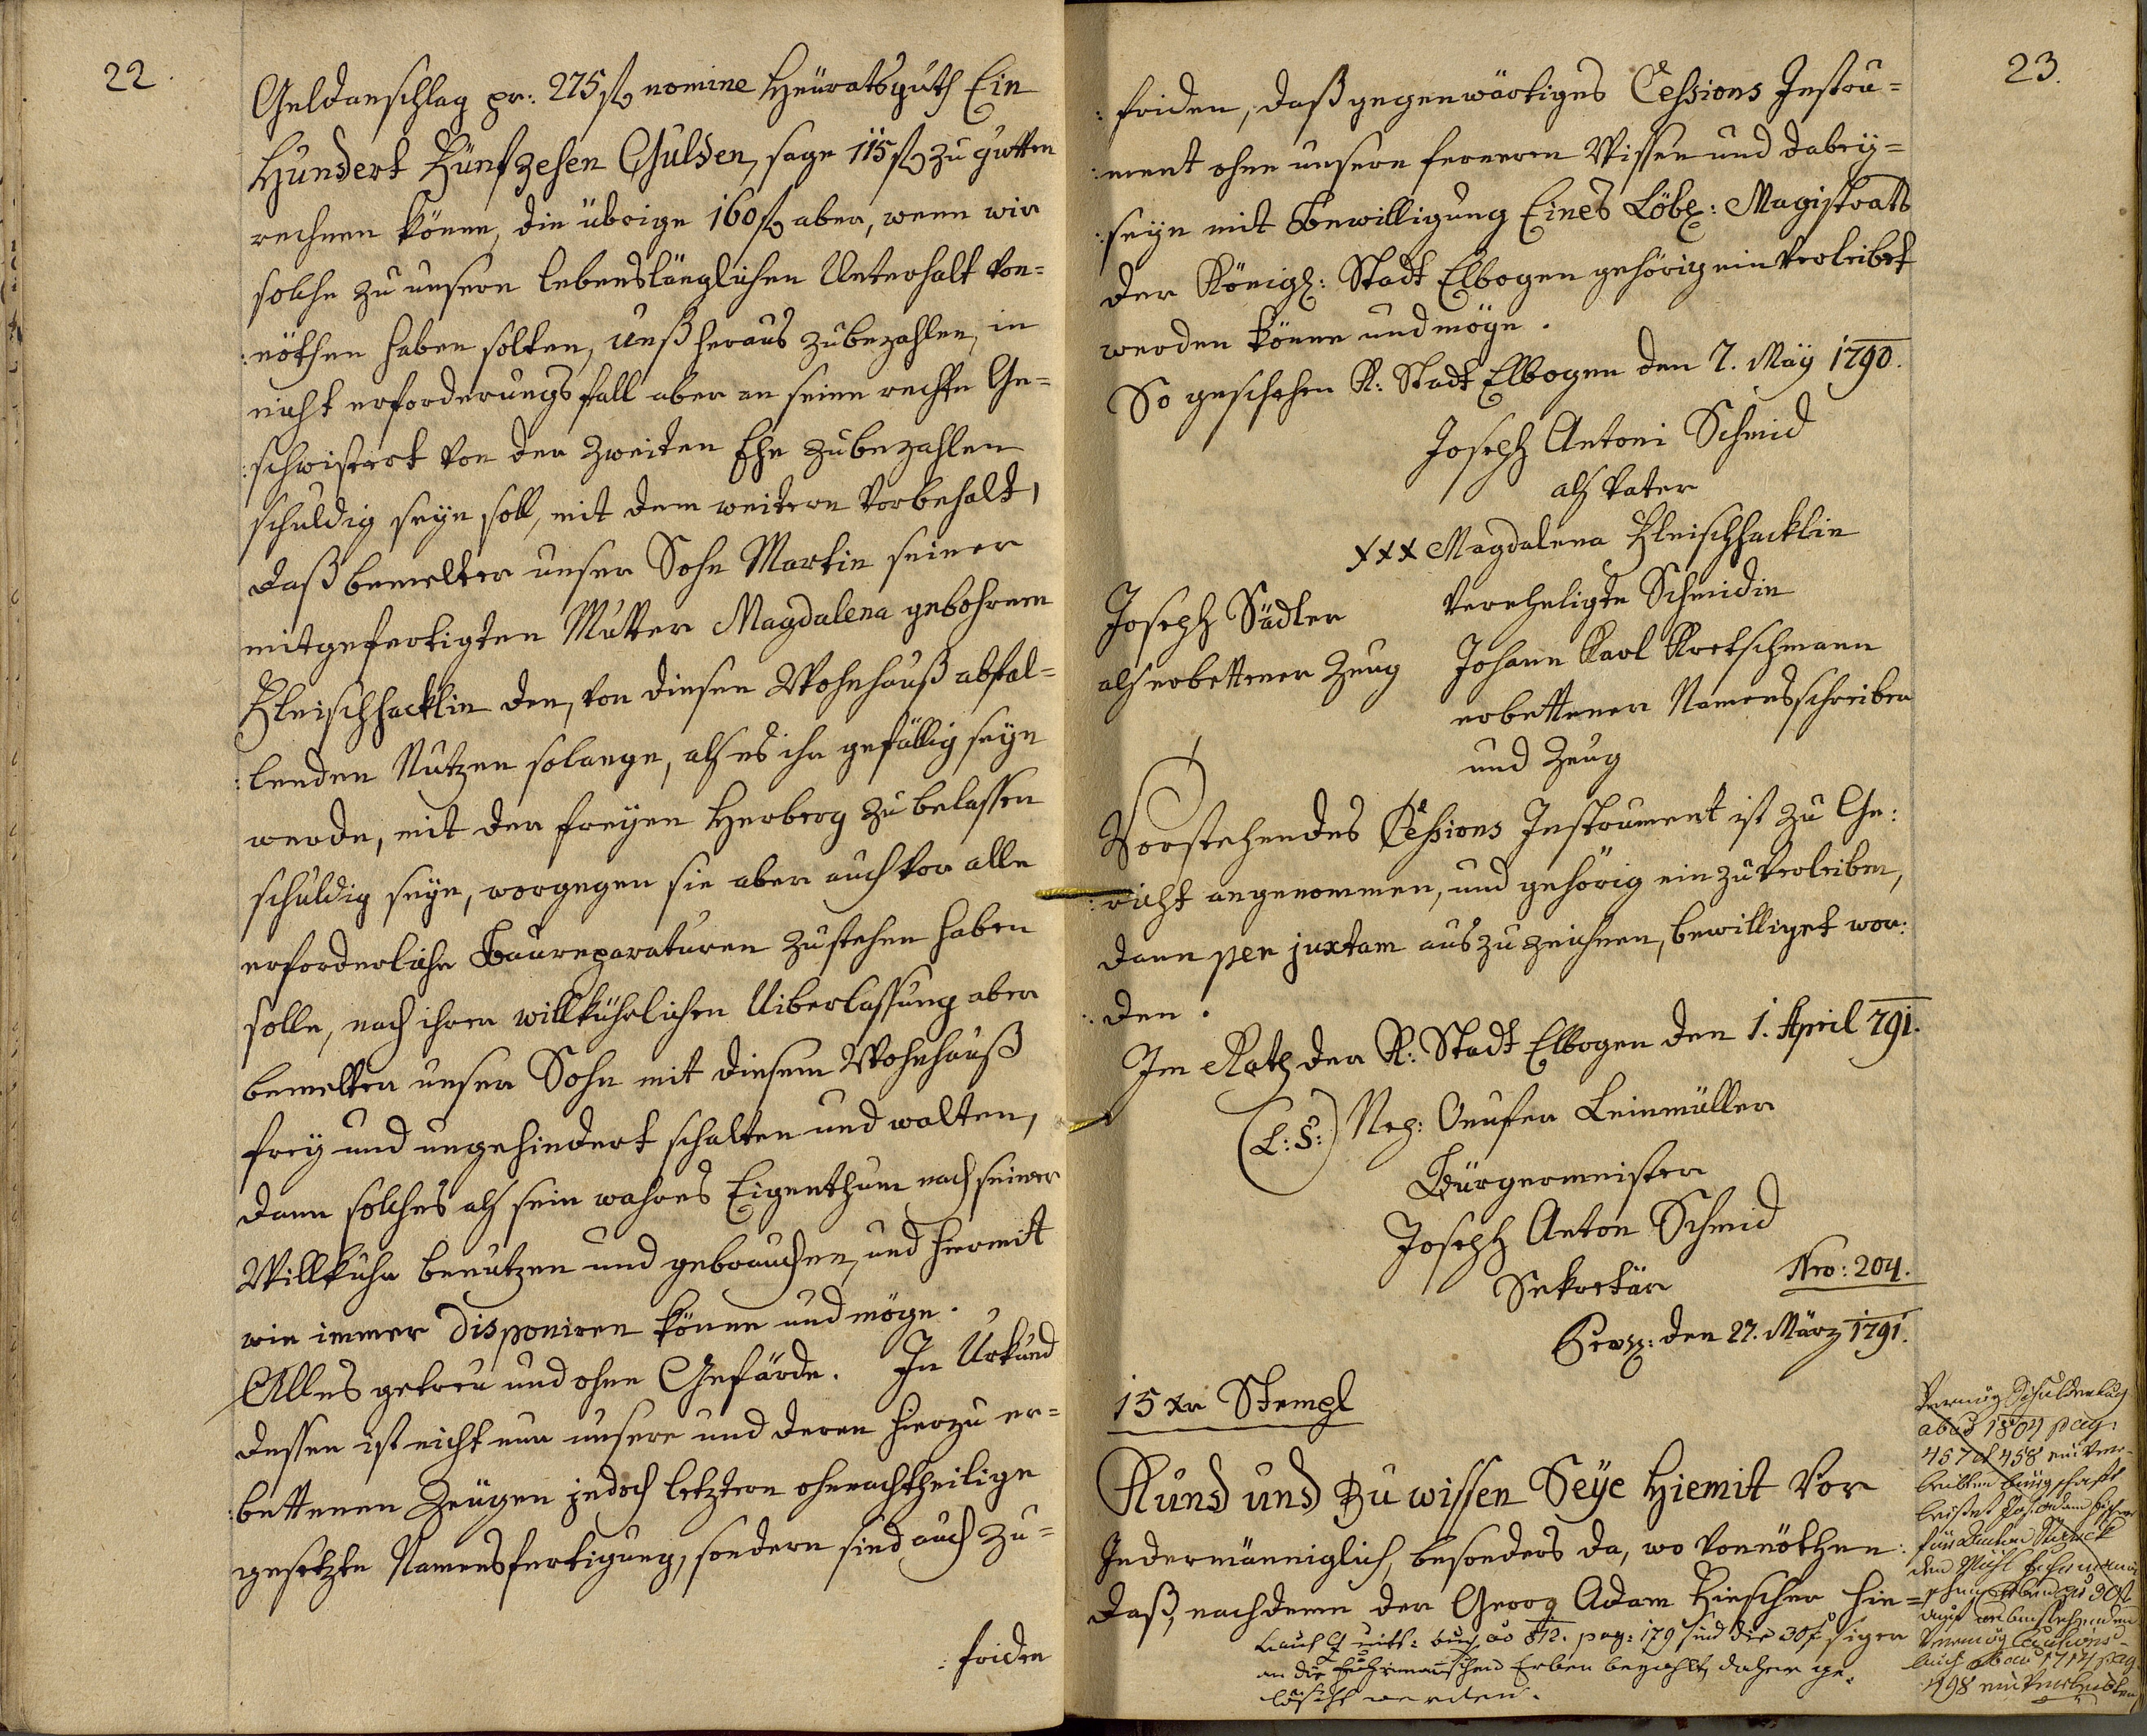 22.
Geldanschlag pr: 275 fl nomine Heüratsguth Ein
Hundert Fünfzehen Gulden, sage 115 fl zu gutten
rechnen könne, die übrige 160 fl aber, wenn wir
solche zu unsern lebenslänglichen Unterhalt von=
:nöthen haben solten, unß heraus zubezahlen, in
nicht erforderungsfall aber an seine rechte Ge=
:schwistert von der zweiten Ehe zubezahlen
schuldig seyn soll, mit dem weitern Vorbehalt,
daß bemelter unser Sohn Martin seiner
mitgefertigten Mutter Magdalena gebohrnen
Fleischhacklin den, von diesen Wohnhauß abfal=
:lenden Nutzen solange, als es ihr gefällig seyn
werde, mit der freyen Herberg zu belassen
schuldig seye, worgegen sie aber auch vor alle
erforderliche Baureparaturen zustehen haben
solle, nach ihrer willkührlichen Uiberlassung aber
bemelter unser Sohn mit diesem Wohnhauß
frey und ungehindert schalten und walten,
dann solches als sein wahres Eigenthum nach seiner
Willkuhr benutzen und gebrauchen, und hiermit
wie immer disponiren könne und möge.
Alles getreu und ohne Gefärde. In Urkund
dessen ist nicht nur unsere und deren hierzu er=
:bettenen Zeugen jedoch letztern ohnnachtheilige
gesetzte Namensfertigung, sondern sind auch zu=
:friden
23.
:friden, daß gegenwärtiges Cessions Instru=
:ment ohne unsern fernern Wissen und dabey=
:seyn mit Bewilligung Eines Löbl: Magistrats
der Königl: Stadt Elbogen gehörig einverleibet
werden könne und möge.
So geschehen K: Stadt Elbogen den 7. May 1790.
Joseph Antoni Schmid
als Vater
xxx Magdalena Fleischhacklin
vereheligte Schmidin
Joseph Sädler
als erbettener Zeug
Johann Karl Kretschmann
erbettener Namensschreiber
und Zeug
Vorstehendes Cessions Instrument ist zu Ge:
:richt angenommen, und gehörig einzuverleiben,
dann per juxtam auszuzeichnen, bewilliget wor:
:den.
Im Rath der K: Stadt Elbogen den 1. April 791.
(L:S:) Nep: Onufer Leinmüller
Bürgermeister
Joseph Anton Schmid
Sekretär
Nro: 204.
den 27. März 1791.
15 xr Stempl
Kund und Zu wissen Seye Hiemit Vor
Jedermänniglich, besonders da, wo vonnöthen:
daß, nachdeme der Georg Adam Fischer hin=
Nach Quitt: buch ao 812. pag: 179 sind die 30 f
an die Erben bezahlt, daher ge=
löscht werden.
Vermög Schuldenbuch
ab ao 1804 pag:
457 et 458 einver=
leibten Bürgschaft
leistet
498 einverleibten